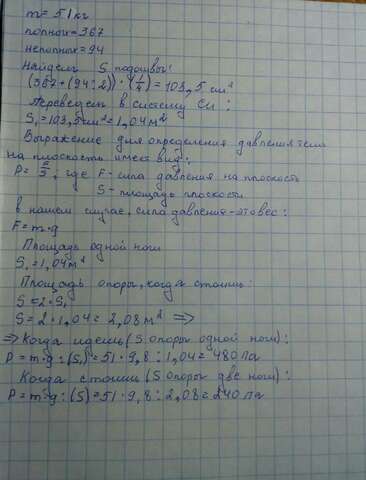 m = 51 кг
полных = 367
неполных = 94
найдем S подошвы:
(367 + (94:2)) · (1/4) = 103,5 см²
Переведем в систему Си:
S₁ = 103,5 см² = 1,04 м²
Выражение для определения давления тела
на плоскость имеет вид:
P = F/S; где F - сила давления на плоскость
S - площадь плоскости
в нашем случае, сила давления - это вес:
F = m · g
Площадь одной ноги
S₁ = 1,04 м²
Площадь опоры, когда стоишь:
S = 2 · S₁
S = 2 · 1,04 = 2,08 м² =>
=> Когда идешь (S опоры одной ноги):
P = m · g : (S₁) = 51 · 9,8 : 1,04 = 480 Па
Когда стоишь (S опоры две ноги):
P = m · g : (S) = 51 · 9,8 : 2,08 = 240 Па